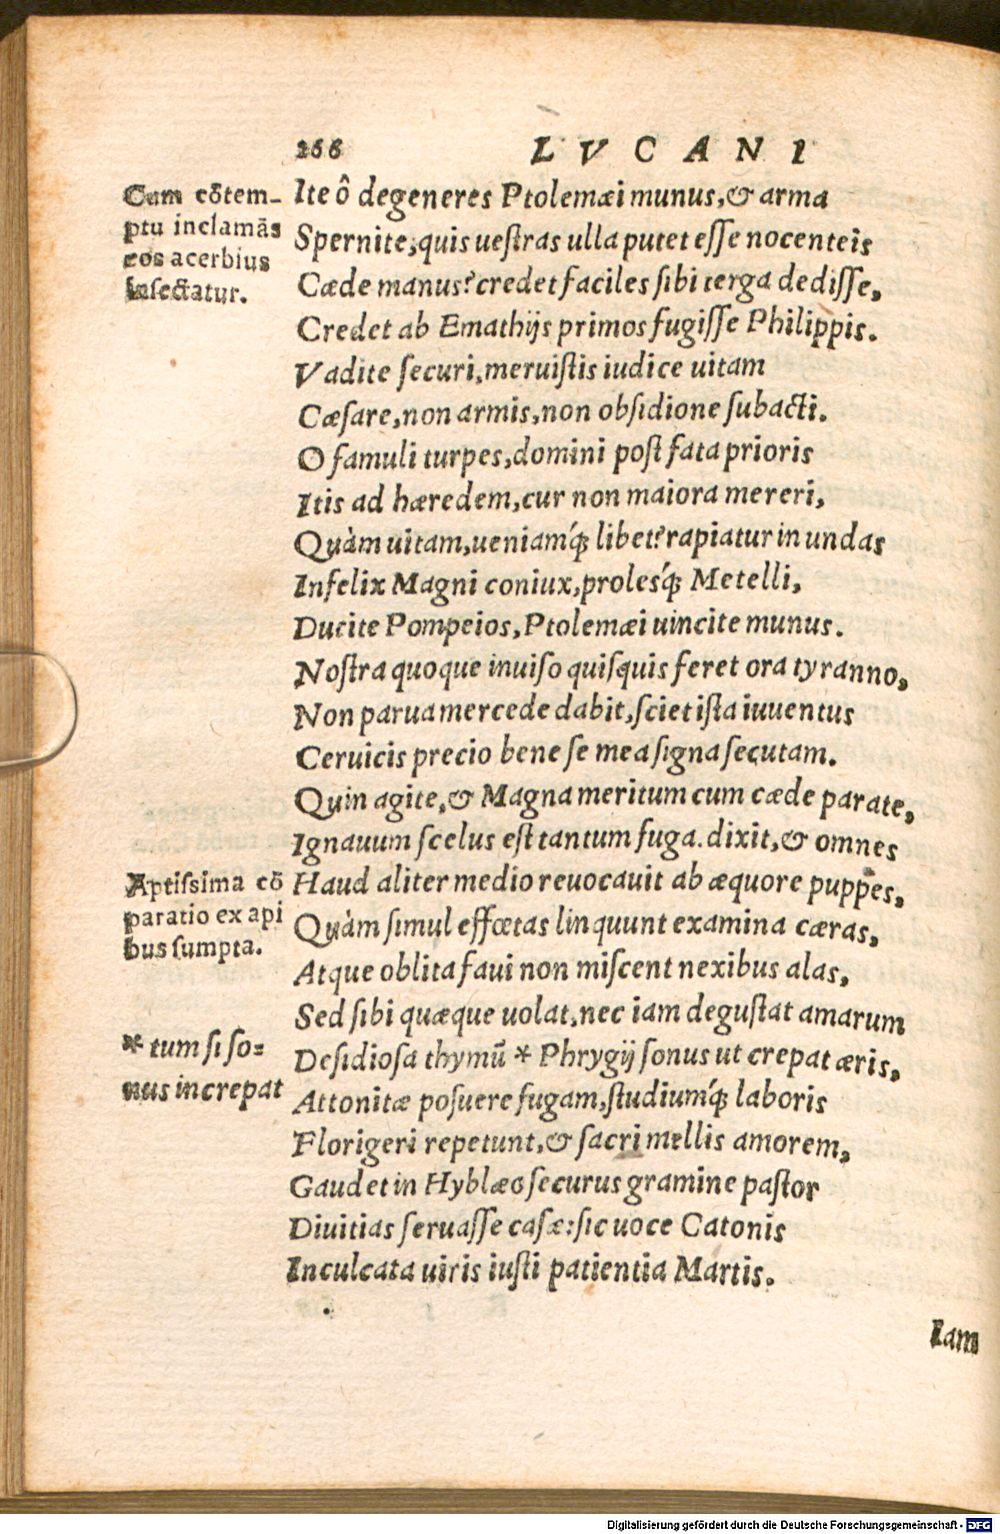 266 LVCANI
Cum cõtem-
ptu inclamãs
eos acerbius
insectatur.
Ite ô degeneres Ptolemæi munus, & arma
Spernite, quis uestras ulla putet esse nocenteis
Cæde manus? credet faciles sibi terga dedisse,
Credet ab Emathijs primos fugisse Philippis.
Vadite securi, meruistis iudice uitam
Cæsare, non armis, non obsidione subacti.
O famuli turpes, domini post fata prioris
Itis ad hæredem, cur non maiora mereri,
Quàm uitam, ueniamq́; libet? rapiatur in undas
Infelix Magni coniux, prolesq́; Metelli,
Ducite Pompeios, Ptolemæi uincite munus.
Nostra quoque inuiso quisquis feret ora tyranno,
Non parua mercede dabit, sciet ista iuuentus
Ceruicis precio bene se mea signa secutam.
Quin agite, & Magna meritum cum cæde parate,
Ignauum scelus est tantum fuga. dixit, & omnes
Aptissima cõ
paratio ex api
bus sumpta.
Haud aliter medio reuocauit ab æquore puppes,
Quàm simul effœtas linquunt examina cæras,
Atque oblita faui non miscent nexibus alas,
Sed sibi quæque uolat, nec iam degustat amarum
* tum si so=
nus increpat
Desidiosa thymũ * Phrygij sonus ut crepat æris,
Attonitæ posuere fugam, studiumq́; laboris
Florigeri repetunt, & sacri mellis amorem,
Gaudet in Hyblæo securus gramine pastor
Diuitias seruasse casæ: sic uoce Catonis
Inculcata uiris iusti patientia Martis.
Iam
Digitalisierung gefördert durch die Deutsche Forschungsgemeinschaft - DFG